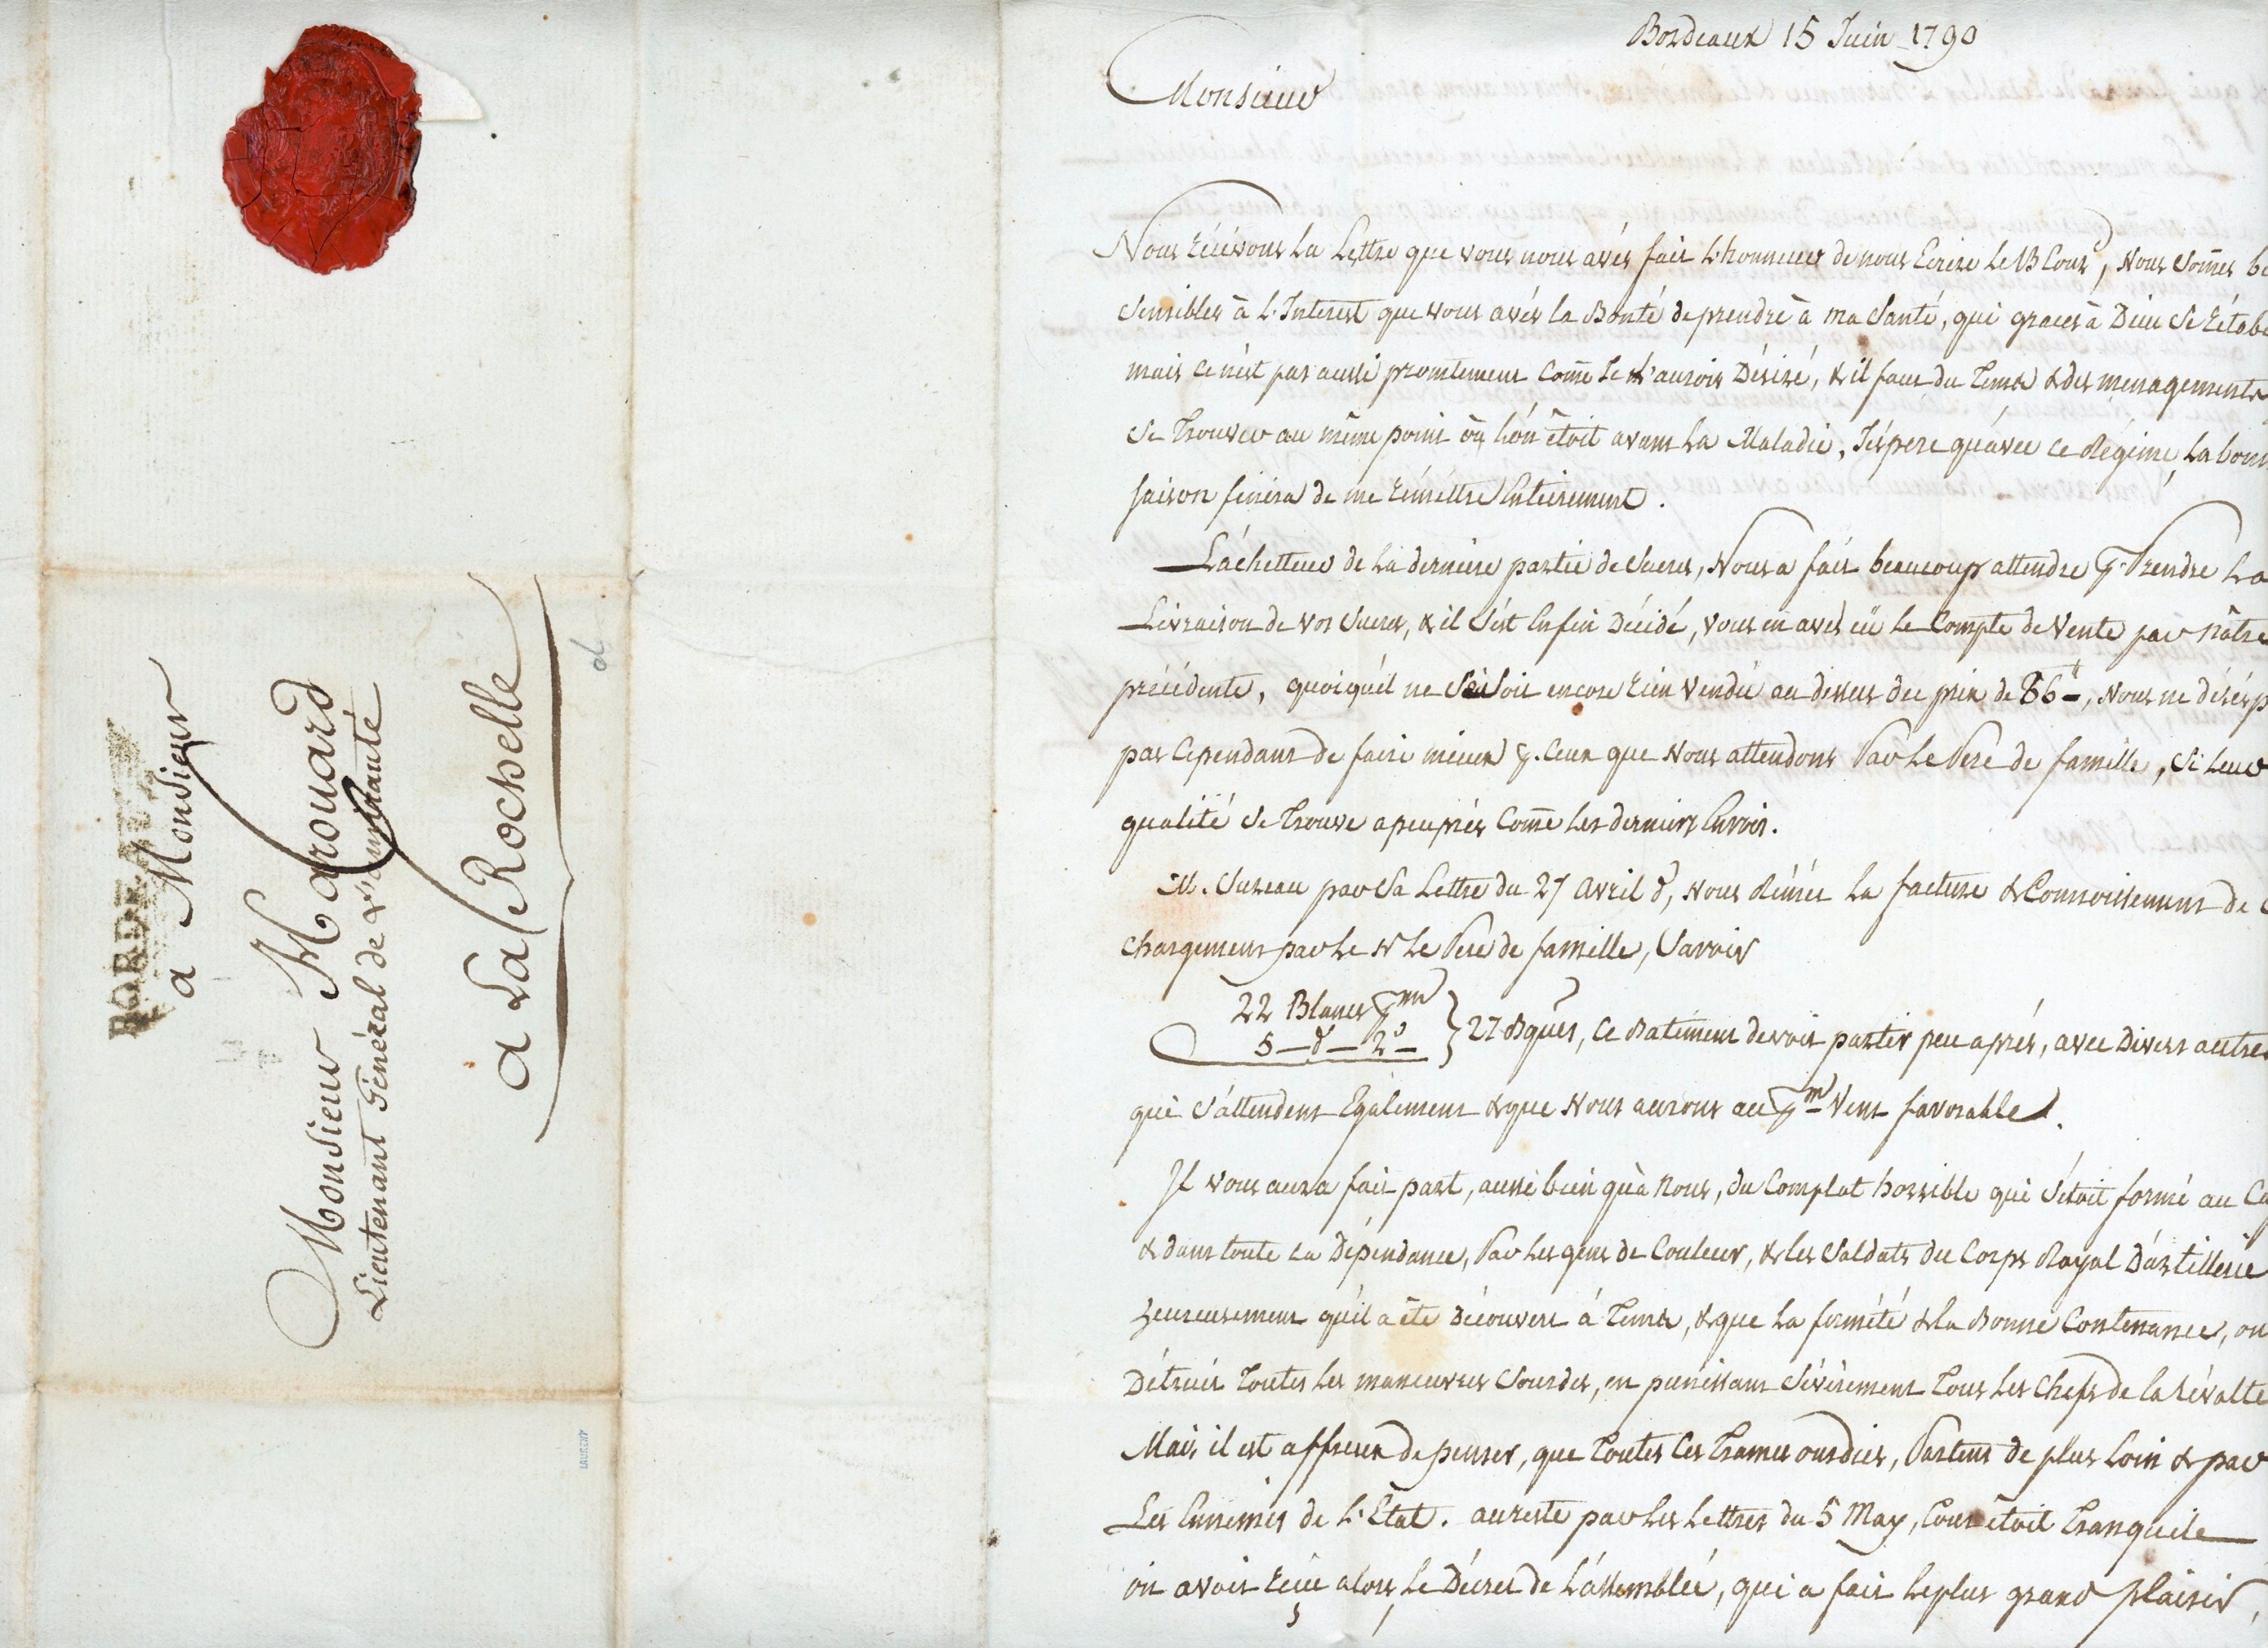 BORDEAUX
a Monsieur
Monsieur Harouard
Lieutenant Général de L'amirauté
a La Rochelle
LAURENT
Bordeaux 15 Juin 1790
Monsieur
Nous récévons La Lettre que vous nous avés fait L'honneur de nous Ecrire Le 13 Cour, Nous Som̄es
Sensibles à L'Interest que vous avés la Bonté de prendre à ma Santé, qui graces à Dieu Se
mais ce n'ést pas aussi promtement Com̄e Je L'aurois Désiré, & il faut du Tems & des menagements
Se Trouver au même point où L'on étoit avant La Maladie, J'éspere qu'avec ce Régime, La
saison finira de me rémettre Entierement.
L'achetteur de La derniere partie de Sucres, Nous a fait beaucoup attendre p. Prendre La
Livraison de vos Sucres, & il S'ést Enfin Décidé, vous en avés eü Le Compte de Vente par Nôtre
précédente, quoiqu'il ne Se Soit encore rien Vendu au dessus du prix de 86ᵗ, Nous ne
pas Cependant de faire mieux p. Ceux que Nous attendons Par Le Pere de famille, Si Leur
qualité Se Trouve apeuprés Com̄e Les derniers Envois.
M. Sureau par Sa Lettre du 27 Avril dᵒ, Nous Rémét La facture & Connoissement de
Chargement par Le Nʳ Le Pere de famille, Savoir
22 Blancs pᵐ
5 — dᵒ — 2ᵒ — } 27 Bques, Ce Batiment devoit partir peu aprés, avec Divers autres
qui S'attendent Egalement & que Nous aurons au pᵐ Vent favorable.
Il vous aura fait part, aussi bien qu'à Nous, du Complot horrible qui S'étoit formé au
& dans toute Sa Dépendance, Par Les gens de Couleur, & les Soldats du Corps Royal D'artillerie
heureusement qu'il a été Découvert à Tems, & que La fermété & la Bonne Contenance, ont
Détruit Toutes Les manœuvres Sourdes, en punissant Sévérement Tous Les Chefs de la révolte
Mais il est affreux de penser, que Toutes Ces Trames ourdies, Partent de plus Loin & par
Les Ennemis de L'Etat. au reste par Les Lettres du 5 May, Tout étoit Tranquile
on avoit réçu alors, Le Décret de L'assemblée, qui a fait le plus grand plaisir,